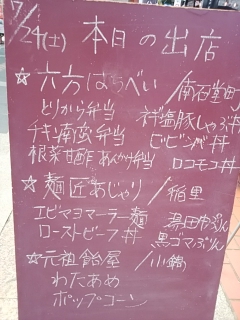 7/24(土) 本日の出店
☆六方はちべい/南石堂町
とりから弁当 ネギ塩豚しゃぶ丼
チキン南蛮弁当 ビビンバ丼
根菜甘酢あんかけ弁当 ロコモコ丼
☆麺匠あじゃり/稲里
エビマヨマーラー麺
ローストビーフ丼 黒ゴマぷりん
☆元祖飴屋/小鍋
わたあめ
ポップコーン